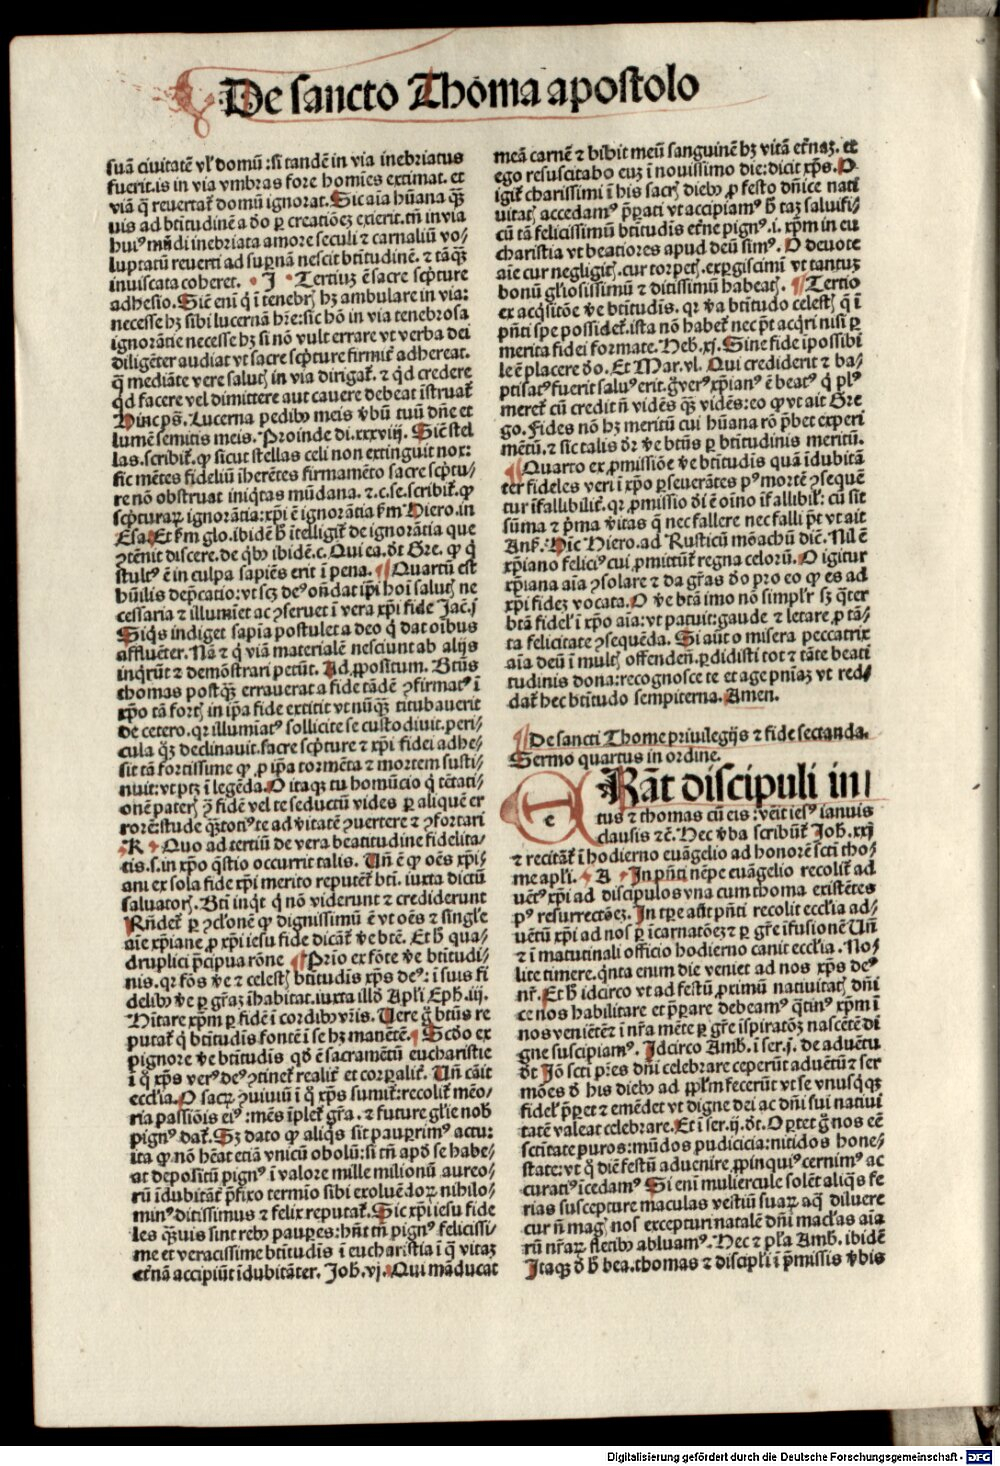 De sancto Thoma apostolo
suã ciuitatẽ vl' domũ: si tandẽ in via inebriatus
fuerit. is in via vmbras fore homĩes extimat. et
viã q̃ reuertat̃ domũ ignorat. Sic aĩa hũana q̃ȝ
uis ad bt̃itudinẽ a ďo ꝑ creatiõeȝ exierit. tñ in via
huiꝰ mũdi inebriata amore seculi ⁊ carnaliũ vo⸗
luptatũ reuerti ad supnã nescit bt̃itudinẽ. ⁊ tãq̃ȝ
inuiscata coheret. J Tertiuȝ ẽ sacre scpture
adhesio. Siẽ eni q̃ ĩ tenebr hȝ ambulare in via:
necesse hȝ sibi lucernã hr̃e: sic hõ in via tenebrosa
ignorãtie necesse hȝ si nõ vult errare vt verba dei
diligẽter audiat vt sacre scpture firmit̃ adhereat.
q̃ mediãte vere salut in via dirigat̃. ⁊ q̃d credere
q̃d facere vel dimittere aut cauere debeat ĩstruat̃
Hinc ps̃. Lucerna pedibꝰ meis v̓bũ tuũ dñe et
lumẽ semitis meis. Proinde di. xxxviij. Siẽ stel
las. scribit̃. ꝙ sicut stellas celi non extinguit nox:
sic mẽtes fideliũ ĩherẽtes firmamẽto sacre scptu⸗
re nõ obstruat iniq̃tas mũdana. ⁊. c. se. scribit̃. ꝙ
scpturaꝝ ignorãtia: xp̃i ẽ ignorãtia ẜm Hiero. in
Esa. Et ẜm glo. ibidẽ h̃ ĩtelligit̃ de ignorãtia que
ꝯtẽnit discere. de q̃bꝰ ibidẽ. c. Qui ea. ďt Gre. ꝙ q̃
stultꝰ ẽ in culpa sapiẽs erit ĩ pena. ¶ Quartũ est
hũilis dep̃catio: vt scȝ deꝰ oñdat ip̃i hoĩ salut ne
cessaria ⁊ illumĩet ac ꝯseruet ĩ vera xp̃i fide Jac̃. j
Siq̃s indiget sapĩa postulet a deo q̃ dat oĩbus
affluẽter. Nã ⁊ q̃ viã materialẽ nesciunt ab alijs
inq̃rũt ⁊ demõstrari petũt. Ad ꝓpositum. Bt̃us
thomas postq̃ȝ errauerat a fide tãdẽ ꝯfirmatꝰ ĩ
xp̃o tã fort̃ in ip̃a fide extitit vt nũq̃ȝ titubauerit
de cetero. qr illumĩatꝰ sollicite se custodiuit. peri⸗
cula q̃ȝ declinauit. sacre scpture ⁊ xp̃i fidei adhe⸗
sit tã fortissime ꝙ ꝓ ip̃a tormẽta ⁊ mortem susti⸗
nuit: vt ptȝ ĩ legẽda. O itaqȝ tu homũcio q̃ tẽtati⸗
onẽ pater̃ ꝯ̃ fidẽ vel te seductũ vides ꝑ aliquẽ er
rorẽ: stude q̃ȝtotiꝰ te ad v̓itatẽ ꝯuertere ⁊ ꝯfortari
K Quo ad tertiũ de vera beatitudine fidelita⸗
tis. s. in xp̃o q̃stio occurrit talis. Uñ ẽ ꝙ oẽs xp̃i⸗
ani ex sola fide xp̃i merito reputẽt̃ bt̃i. iuxta dictũ
saluatoř. Bt̃i inq̃t q̃ nõ viderunt ⁊ crediderunt
Rñdet̃ ꝑ ꝯcl'onẽ ꝙ dignissimũ ẽ vt oẽs ⁊ singl'e
aĩe xp̃iane ꝓ xp̃i iesu fide dicãt̃ v̓e bt̃e. Et h̃ qua⸗
druplici p̃cipua rõne ¶ Prĩo ex fõte v̓e bt̃itudi⸗
nis. qr fõs v̓e ⁊ celest̃ bt̃itudĩs xp̃s deꝰ: ĩ suis fi
delibꝰ v̓e ꝑ gr̃aȝ ĩhabitat. iuxta illď Apl'i Eph. iij.
Hĩtare xp̃m ꝑ fidẽ ĩ cordibꝰ vr̃is. Uere g̃ bt̃us re
putat̃ q̃ bt̃itudĩs fontẽ ĩ se hȝ manẽtẽ. ¶ Scďo ex
pignore v̓e bt̃itudĩs qď ẽ sacramẽtũ eucharistie
ĩ q̃ xp̃s verꝰ deꝰ ꝯtinet̃ realit̃ et corꝑalit̃. Uñ cãit
eccl'ia. O sacȝ ꝯuiuiũ ĩ q̃ xp̃s sumit̃: recolit̃ mẽo⸗
ria passiõis eiꝰ: mẽs ĩplet̃ gr̃a. ⁊ future gl'ie nob̃
pignꝰ dat̃. Sȝ dato ꝙ aliq̃s sit pauꝑrimꝰ actu:
ita ꝙ nõ hẽat etiã vnicũ obolũ: si tñ apď se habe⸗
at depositũ pignꝰ ĩ valore mille milionũ aureo⸗
rũ ĩdubitãt̃ p̃fixo termĩo sibi exoluẽdoꝝ nihilo⸗
minꝰ ditissimus ⁊ felix reputat̃. Sic xp̃i iesu fide
les q̃ȝuis sint rebꝰ pauꝑes: hñt tñ pignꝰ felicissi⸗
me et veracissime bt̃itudĩs ĩ eucharistia ĩ q̃ vitaȝ
et̃nã accipiũt ĩdubitãter. Joh. vj. Qui mãducat
meã carnẽ ⁊ bibit meũ sanguinẽ hȝ vitã et̃naȝ. et
ego resuscitabo euȝ ĩ nouissimo die: dicit xp̃s. O
igit̃ charissimi ĩ his sacr̃ diebꝰ ꝓ festo dñice nati
uitat̃ accedamꝰ p̃ꝑati vt accipiamꝰ h̃ taȝ saluifi⸗
cũ tã felicissimũ bt̃itudĩs et̃ne pignꝰ. i. xp̃m in eu
charistia vt beatiores apud deũ simꝰ. O deuote
aĩe cur negligit̃. cur torpet̃. exꝑgiscimĩ vt tantuȝ
bonũ gl'iosissimũ ⁊ ditissimũ habeat̃. ¶ Tertio
ex acq̃sitõe v̓e bt̃itudĩs. qr v̓a bt̃itudo celest̃ q̃ ĩ
p̃ñti spe possidet̃. ista nõ habet̃ nec p̃t acq̃ri nisi ꝑ
merita fidei formate. Heb. xj. Sine fide ĩpossibi
le ẽ placere ďo. Et Mar. vl. Qui crediderit ⁊ ba⸗
ptisatꝰ fuerit saluꝰ erit. g̃ verꝰ xp̃ianꝰ ẽ beatꝰ q̃ plꝰ
meret̃ cũ credit ñ vidẽs q̃ȝ vidẽs: eo ꝙ vt ait Gre
go. Fides nõ hȝ meritũ cui hũana rõ p̃bet experi
mẽtũ. ⁊ sic talis ďr v̓e bt̃us ꝑ bt̃itudinis meritũ.
¶ Quarto ex ꝓmissiõe v̓e bt̃itudĩs quã ĩdubitã
ter fideles veri ĩ xp̃o ꝑseuerãtes pꝰ mortẽ ꝯsequẽ
tur ĩfallibilit̃. qr ꝓmissio ďi ẽ oĩno ĩfallibil': cũ sit
sũma ⁊ p̃ma v̓itas q̃ nec fallere nec falli p̃t vt ait
Anš. Hĩc Hiero. ad Rusticũ mõachũ diẽ. Nil ẽ
xp̃iano feliciꝰ cui ꝓmittũt̃ regna celorũ. O igitur
xp̃iana aĩa ꝯsolare ⁊ da gr̃as ďo pro eo ꝙ es ad
xp̃i fideȝ vocata. O v̓e bt̃a imo nõ simpl'r sȝ q̃ter
bt̃a fidel' ĩ xp̃o aĩa: vt patuit: gaude ⁊ letare ꝓ tã⸗
ta felicitate ꝯsequẽda. Si aũt o misera peccatrix
aĩa deũ ĩ mult̃ offendeñ. ꝑdidisti tot ⁊ tãte beati
tudinis dona: recognosce te et age pñiaȝ vt red⸗
dat̃ hec bt̃itudo sempiterna. Amen.
¶ De sancti Thome priuilegijs ⁊ fide sectanda.
Sermo quartus in ordine.
e Rãt discipuli in
tus ⁊ thomas cũ eis: vẽit iesꝰ ianuis
clausis ⁊c̃. Hec v̓ba scribũt̃ Joh. xxj
⁊ recitãt̃ ĩ hodierno euãgelio ad honorẽ sct̃i tho⸗
me apl'i. A In p̃ñti nẽpe euãgelio recolit̃ ad
uẽtꝰ xp̃i ad discipulos vna cum thoma existẽtes
pꝰ resurrectõeȝ. In tp̃e aũt p̃ñti recolit eccl'ia ad⸗
uẽtũ xp̃i ad nos ꝑ ĩcarnatõeȝ ⁊ ꝑ gr̃e ĩfusionẽ Uñ
⁊ ĩ matutinali officio hodierno canit eccl'ia. No⸗
lite timere. q̃nta enim die veniet ad nos xp̃s deꝰ
nr̃. Et h̃ idcirco vt ad festũ ꝓximũ natiuitat̃ dñi
ce nos habilitare et p̃ꝑare debeamꝰ q̃tinꝰ xp̃m ĩ
nos veniẽteȝ ĩ nr̃a mẽte ꝑ gr̃e ĩspiratõȝ nascẽtẽ di
gne suscipiamꝰ. Idcirco Amb. ĩ ser. j. de aduẽtu
ďt Jõ sct̃i pr̃es dñi celebrare ceperũt aduẽtũ ⁊ ser
mões ď his diebꝰ ad ꝓpl'm fecerũt vt se vnusq̃sqȝ
fidel' p̃ꝑet ⁊ emẽdet vt digne dei ac dñi sui natiui
tatẽ valeat celebrare. Et ĩ ser. ij. ďt. Oꝑtet g̃ nos eẽ
sct̃itate puros: mũdos pudicicia: nitidos hone⸗
state: vt q̃ diẽ festũ aduenire ꝓpinquiꝰ cernimꝰ ac
curatiꝰ ĩcedamꝰ Si eni muliercule solẽt aliq̃s fe
rias suscepture maculas vestiũ suaꝝ aq̃ diluere
cur ñ mag̃ nos excepturi natalẽ dñi macl'as aĩa
rũ nr̃aꝝ fletibꝰ abluamꝰ. Hec ⁊ pl'a Amb. ibidẽ
Itaqȝ ď h̃ bea. thomas ⁊ discipl'i ĩ p̃missis v̓bis
Digitalisierung gefördert durch die Deutsche Forschungsgemeinschaft - DFG